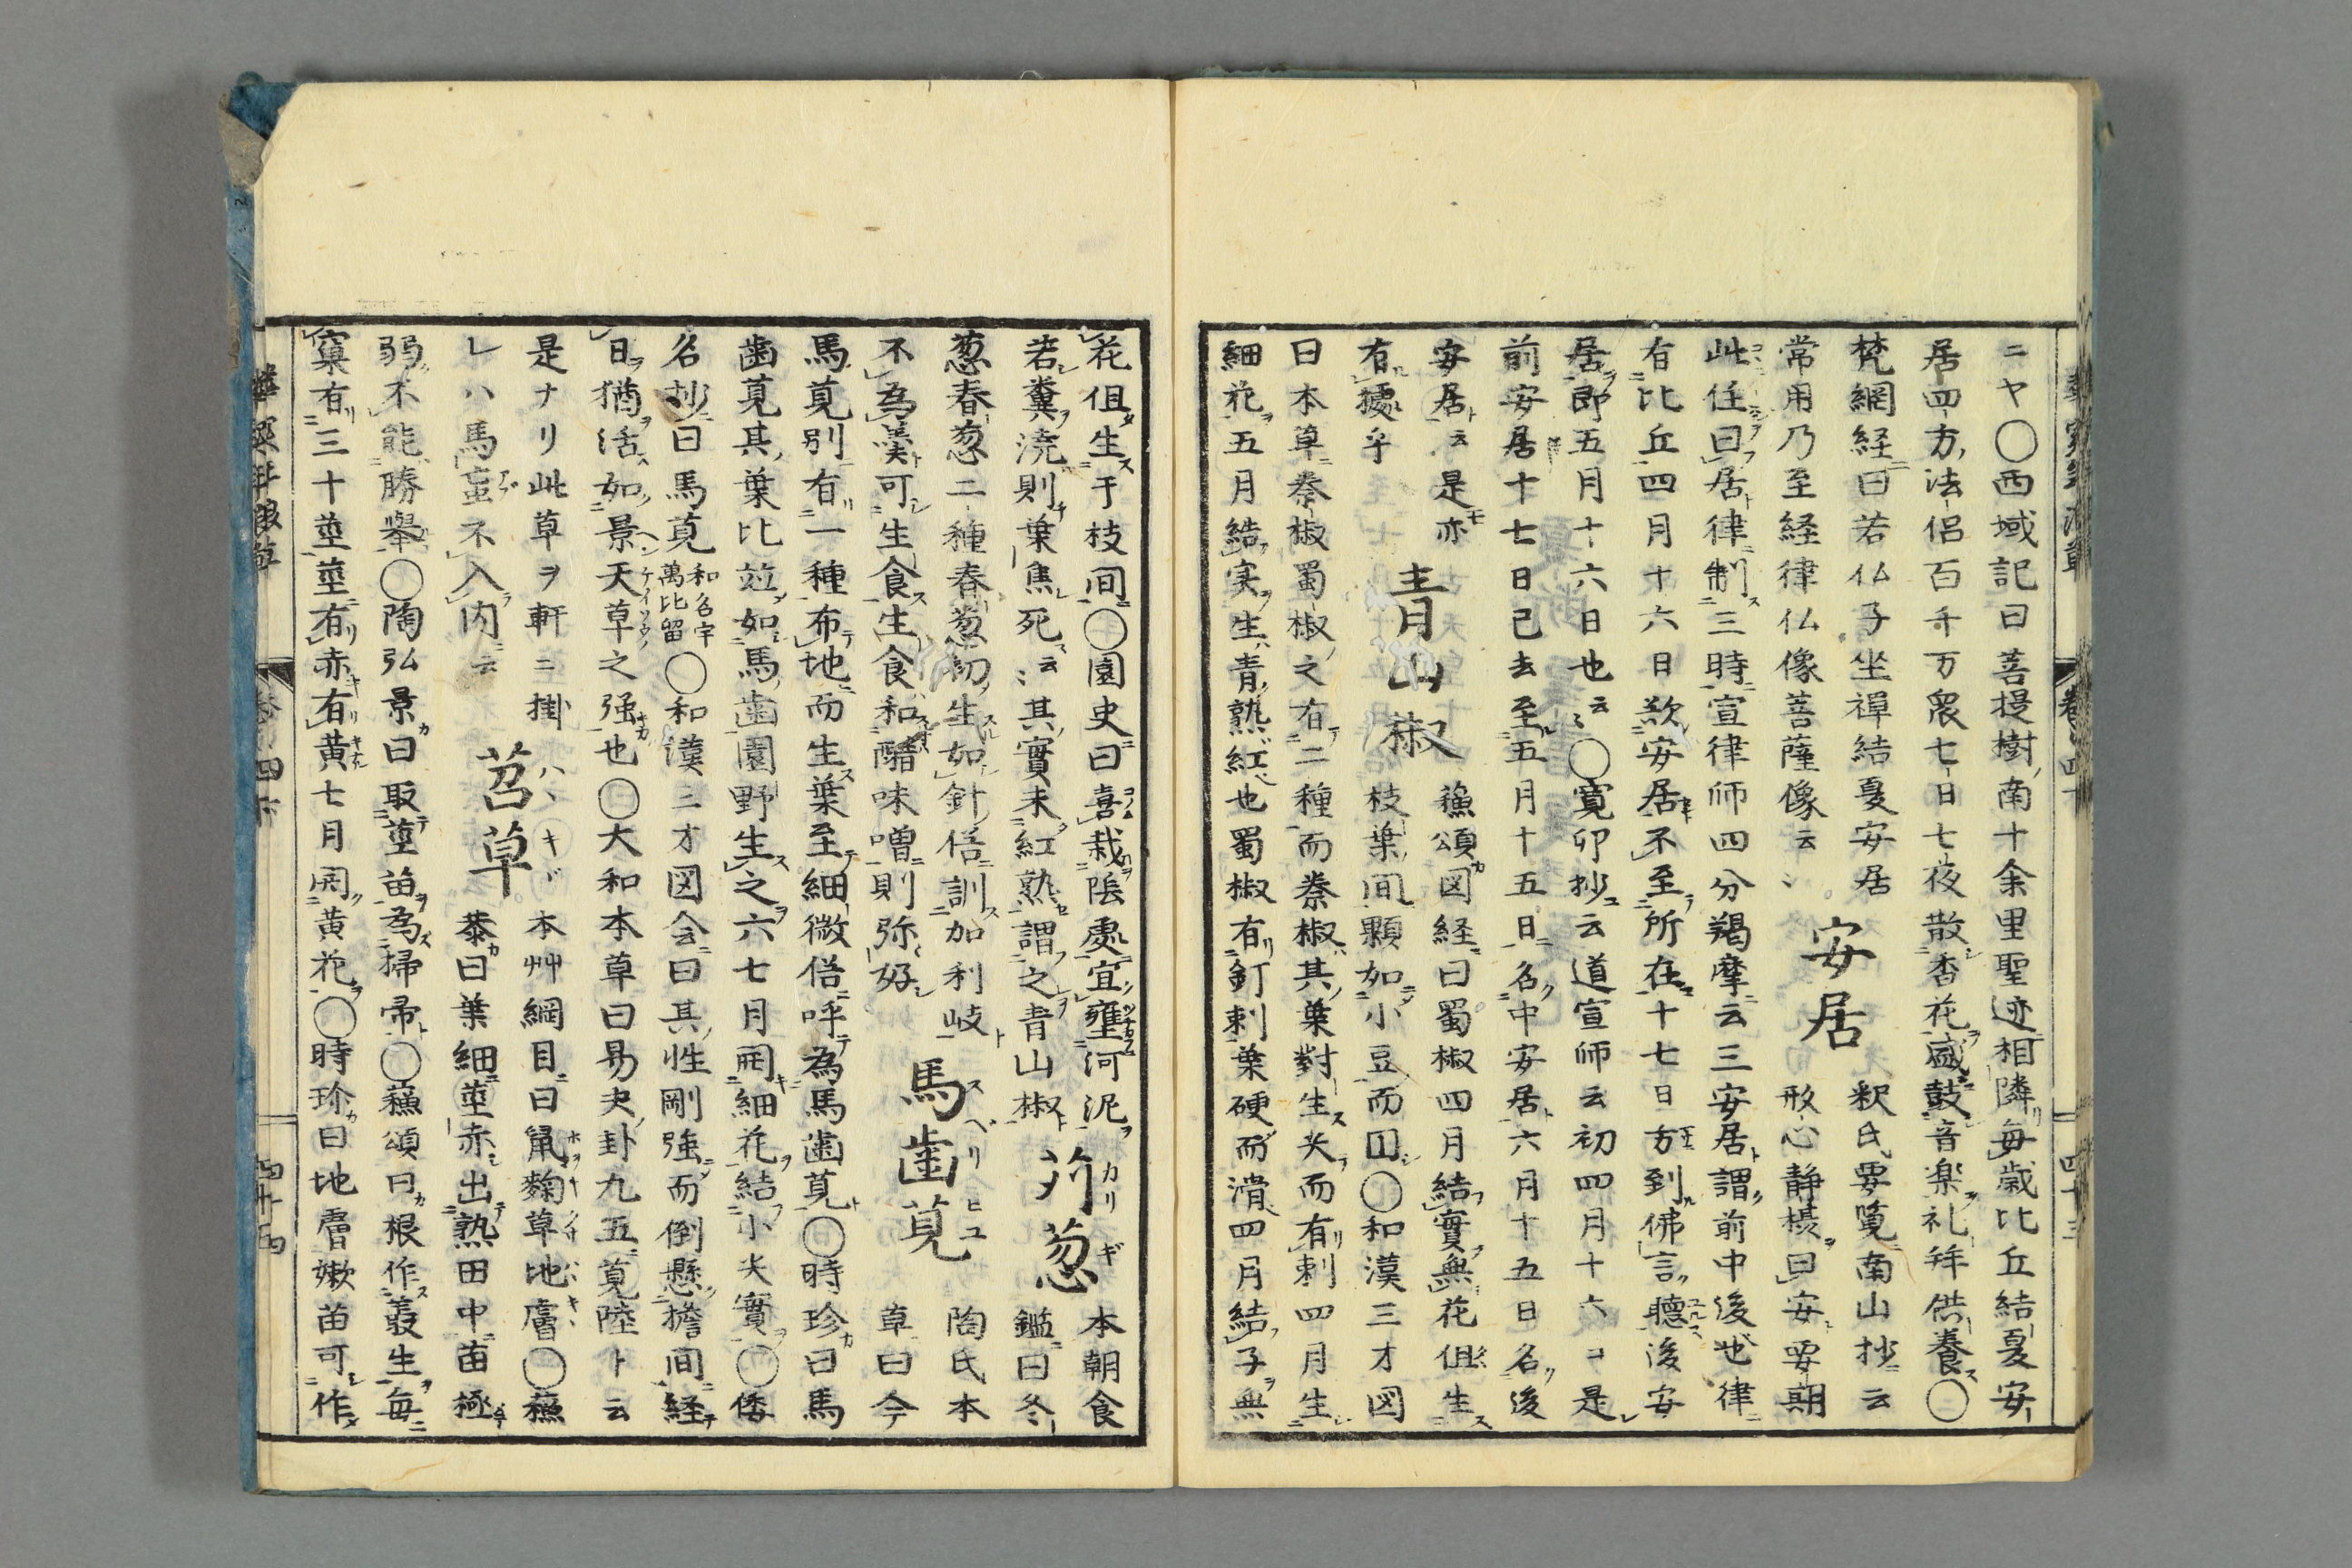 ニヤ〇西域記曰菩提樹南十余里聖迹相隣毎歳比丘結夏安
居四方法侶百千万衆七日七夜散香花盛鼓音楽礼拜供養〇
梵網経曰若仏子坐禅結夏安居
常用乃至経律仏像菩薩像云〻
安居
釈氏要覧南山抄云
形心静摂曰安要期
此住曰居律制三時宣律师四分羯摩云三安居謂前中後也律
有比丘四月十六日欲安居不至所在十七日方到佛言聴後安
居即五月十六日也云〻〇寛卯抄云道宣师云初四月十六ヨ是
前安居十七日已去至五月十五日名中安居六月十五日名後
安居云是亦
有據乎
青山椒
蘓頌図経曰蜀椒四月結實無花但生
枝葉間顆如小豆而圓〇和漢三才図
曰本草秦椒蜀椒之有二種而秦椒其葉對生尖而有刺四月生
細花五月結実生青熟紅也蜀椒有釘刺葉硬而滑四月結子無
花但生于枝间〇園史曰喜栽陰處宜壅河泥
若糞澆則葉焦死云〻其實未紅熟謂之青山椒
苅葱
カリギ
本朝食
鑑曰冬
葱春葱二種春葱初生如針俗訓加利岐
不為羹可生食生食和醋味噌則弥好
馬歯莧
スベリヒユ
陶氏本
草曰今
馬莧别有一種布地而生葉至細微俗呼為馬歯莧〇時珍曰馬
歯莧其葉比並如馬歯園野生之六七月開細花結小尖實〇倭
名抄曰馬莧和名宇萬比留〇和漢三才図会曰其性剛強而倒懸擔间経
日猶活如景天草之强也〇大和本草曰易夬卦九五莧陸ト云
是ナリ此草ヲ軒ニ掛
レハ馬蝱不入内云
苕草
ハヽキヾ
本艸綱目曰鼠麴草地膚〇蘓
恭曰葉細莖赤出熟田中苗極
弱不能勝舉〇陶弘景曰取莖苗為掃帚〇蘓頌曰根作叢生毎
窠有三十莖莖有赤有黄七月開黄花〇時珍曰地膚嫰苗可作
巻四
四十三
四十四